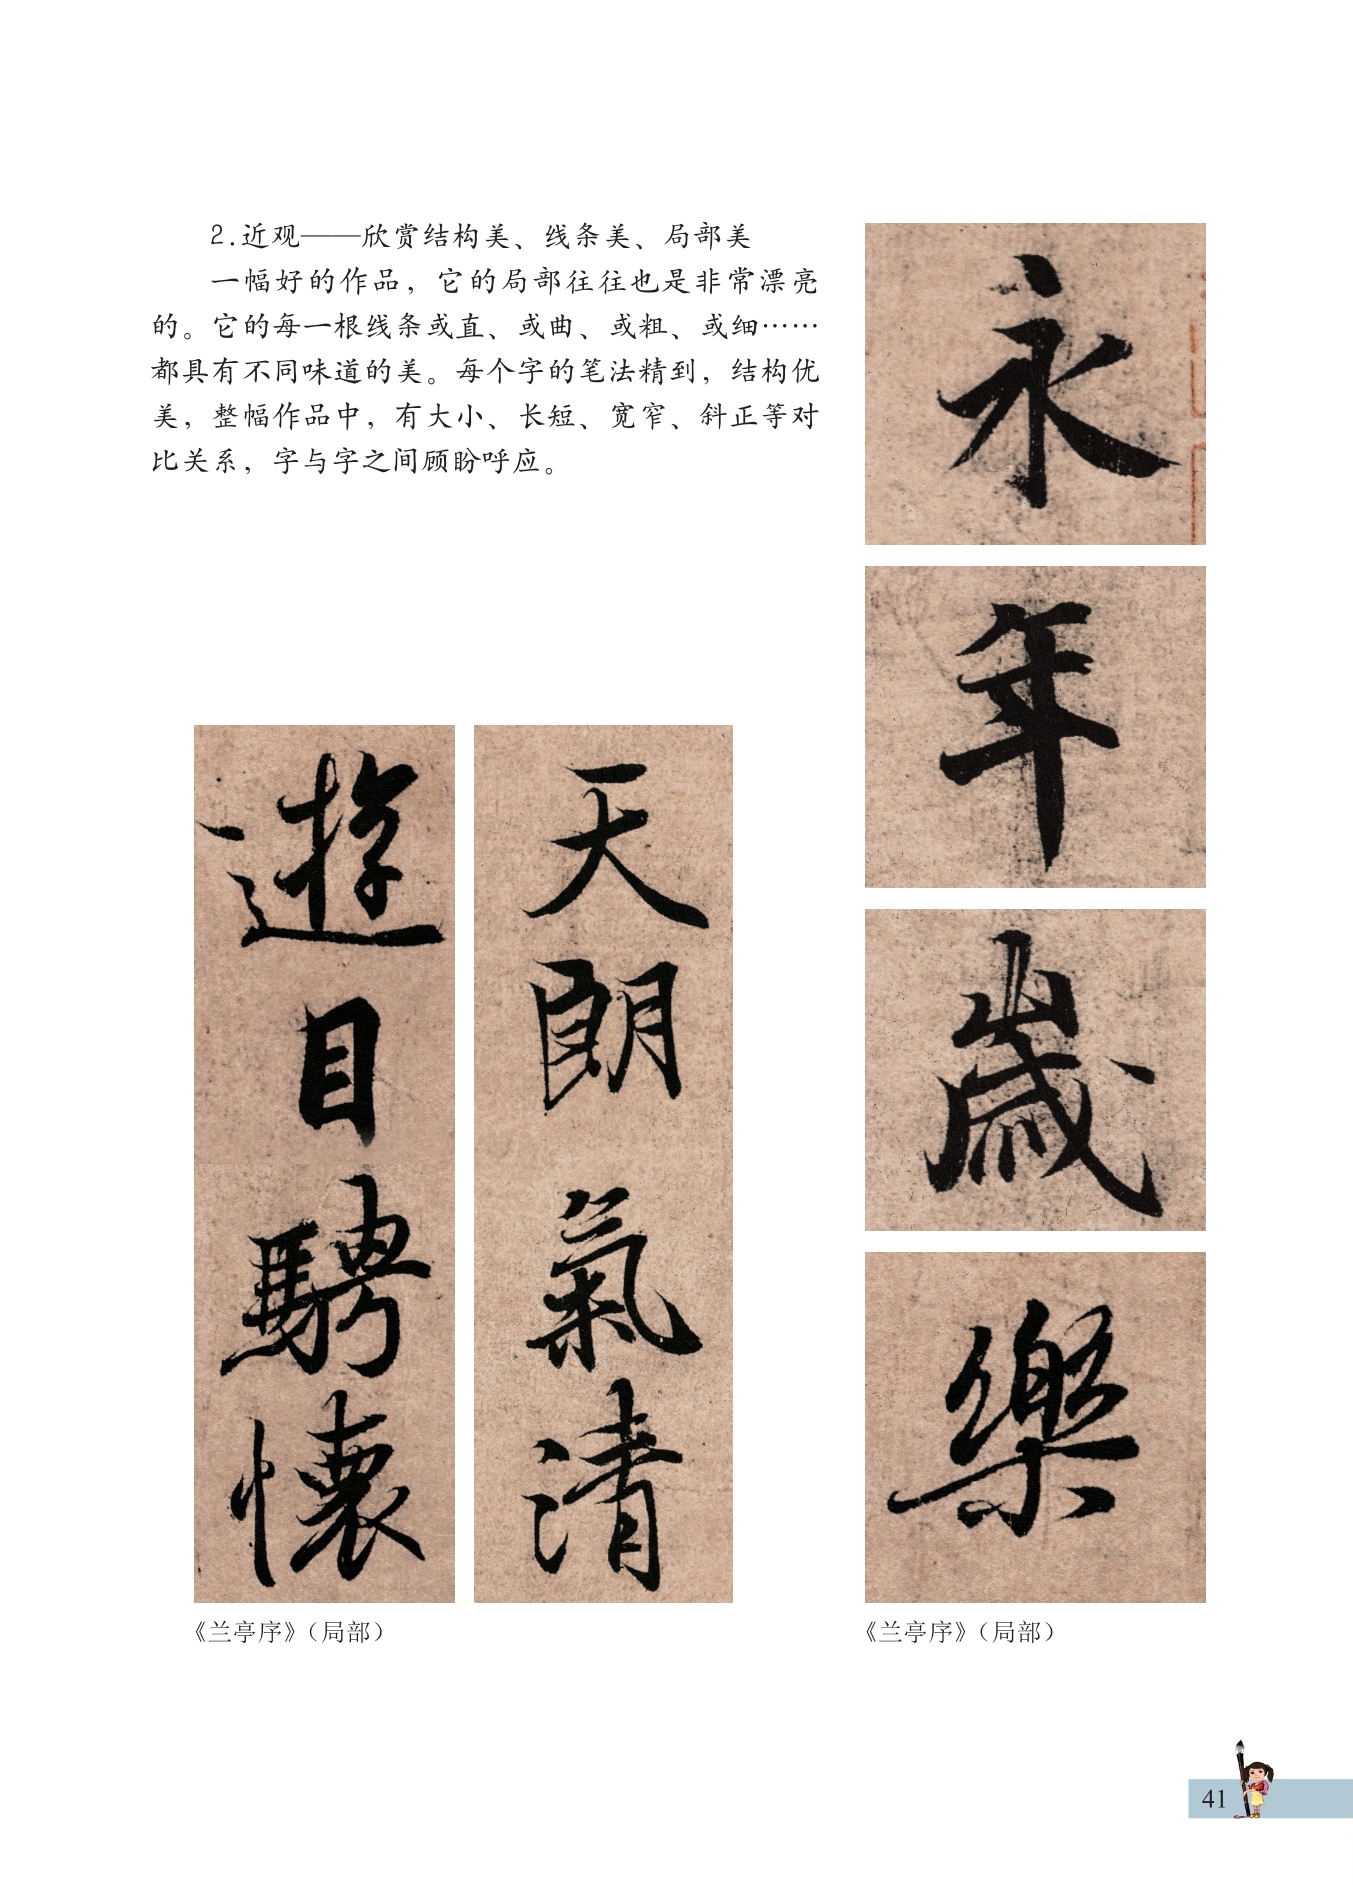 2.近观——欣赏结构美、线条美、局部美
一幅好的作品，它的局部往往也是非常漂亮
的。它的每一根线条或直、或曲、或粗、或细……
都具有不同味道的美。每个字的笔法精到，结构优
美，整幅作品中，有大小、长短、宽窄、斜正等对
比关系，字与字之间顾盼呼应。
永
年
歲
樂
天
朗
氣
清
遊
目
騁
懷
《兰亭序》（局部）
《兰亭序》（局部）
41